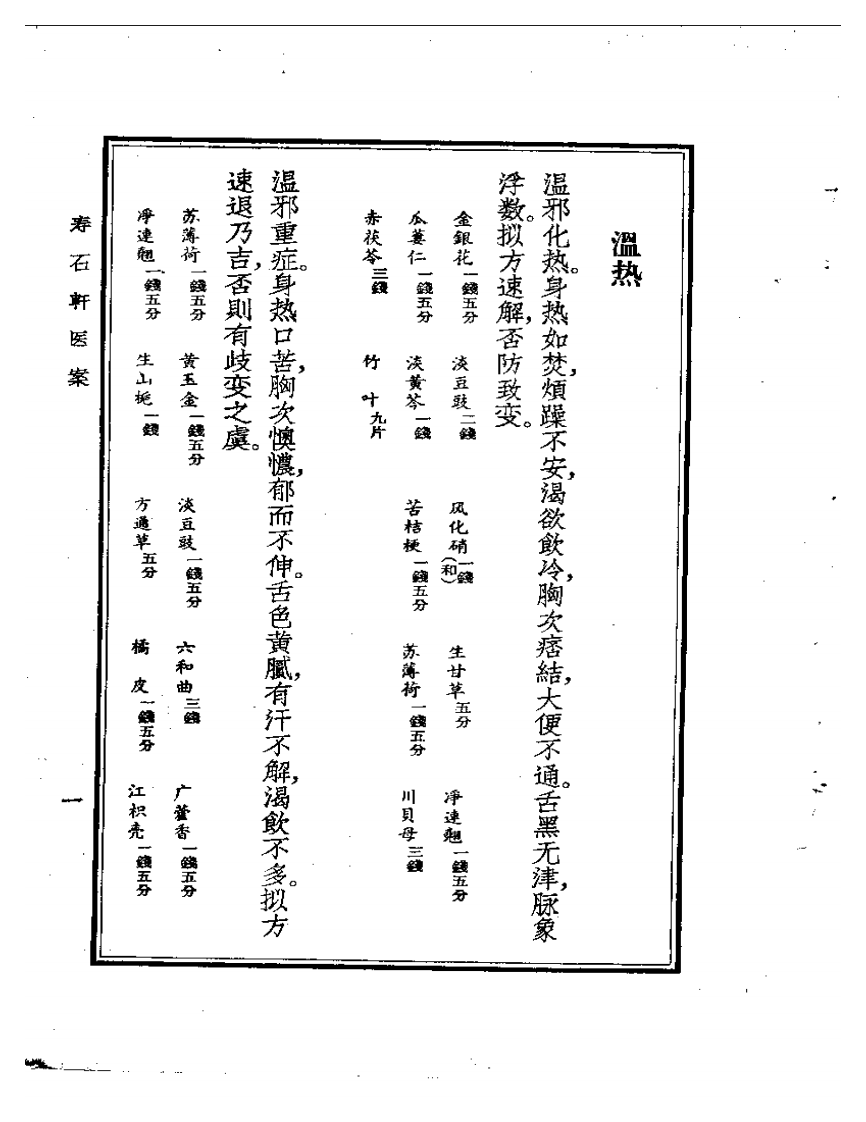 溫热
溫邪化热。身热如焚，煩躁不安，渴欲飲冷，胸次痞結，大便不通。舌黑无津，脉象
浮数。拟方速解，否防致变。
金銀花一錢五分 淡豆豉二錢 风化硝一錢(和) 生甘草五分 凈連翹一錢五分
瓜蔞仁一錢五分 淡黃芩一錢 苦桔梗一錢五分 苏薄荷一錢五分 川貝母三錢
赤茯苓三錢 竹叶九片
溫邪重症。身热口苦，胸次懊憹，郁而不伸。舌色黃膩，有汗不解，渴飲不多。拟方
速退乃吉，否則有歧变之虞。
苏薄荷一錢五分 黃玉金一錢五分 淡豆豉一錢五分 六和曲三錢 广藿香一錢五分
凈連翹一錢五分 生山梔一錢 方通草五分 橘皮一錢五分 江枳壳一錢五分
寿石軒医案
一